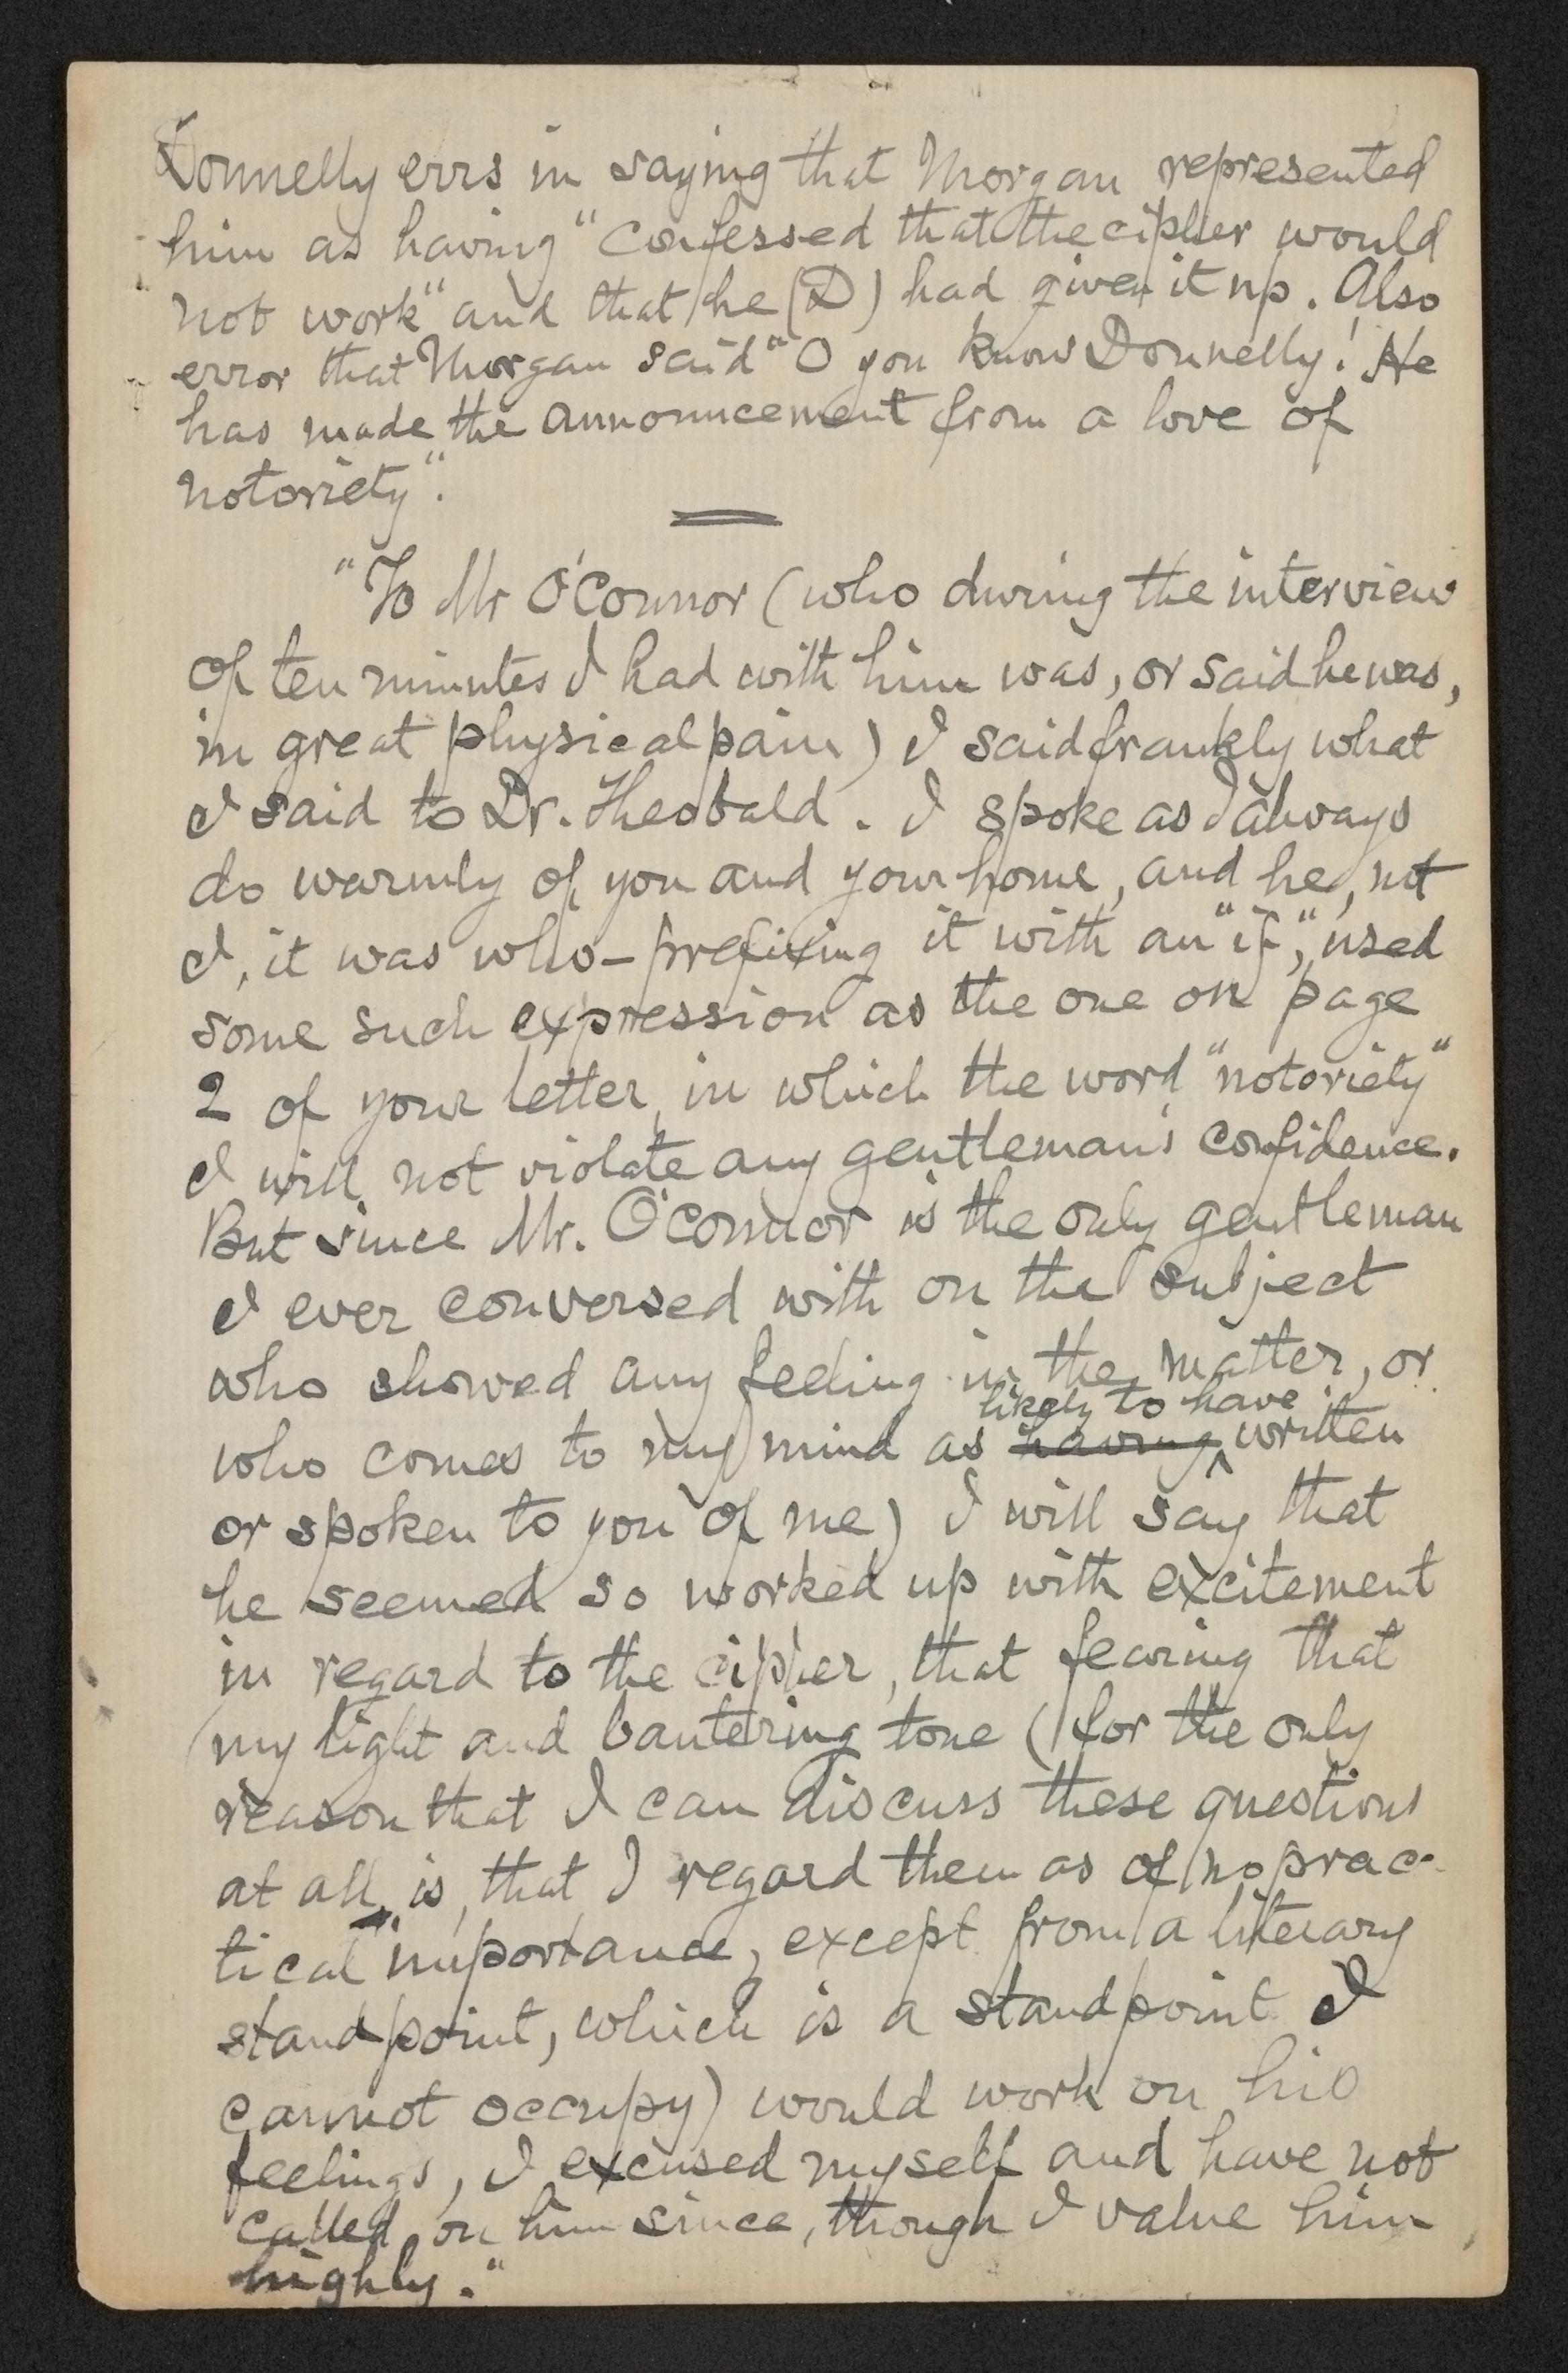 Donnelly errs in saying that Morgan represented
him as having "confessed that the cipher would
not work" and that he (D) had given it up. Also
error that Morgan said "O you know Donnelly! He
has made the announcement from a love of
notoriety".
"To Mr O'Connor (who during the interview
of ten minutes I had with him was, or said he was,
in great physical pain) I said frankly what
I said to Dr. Theobald. I spoke as I always
do warmly of you and your home, and he, not
I, it was who – prefixing it with an "if", used
some such expression as the one on page
2 of your letter, in which the word "notoriety"
I will not violate any gentleman's confidence.
But since Mr. O'Connor is the only gentleman
I ever conversed with on the subject
who showed any feeling in the matter, or
likely to have
who comes to my mind as having written
or spoken to you of me) I will say that
he seemed so worked up with excitement
in regard to the cipher, that fearing that
my light and bantering tone (for the only
reason that I can discuss these questions
at all, is, that I regard them as of no prac-
tical importance, except from a literary
standpoint, which is a standpoint I
cannot occupy) would work on his
feelings, I excused myself and have not
called on him since, though I value him
highly."